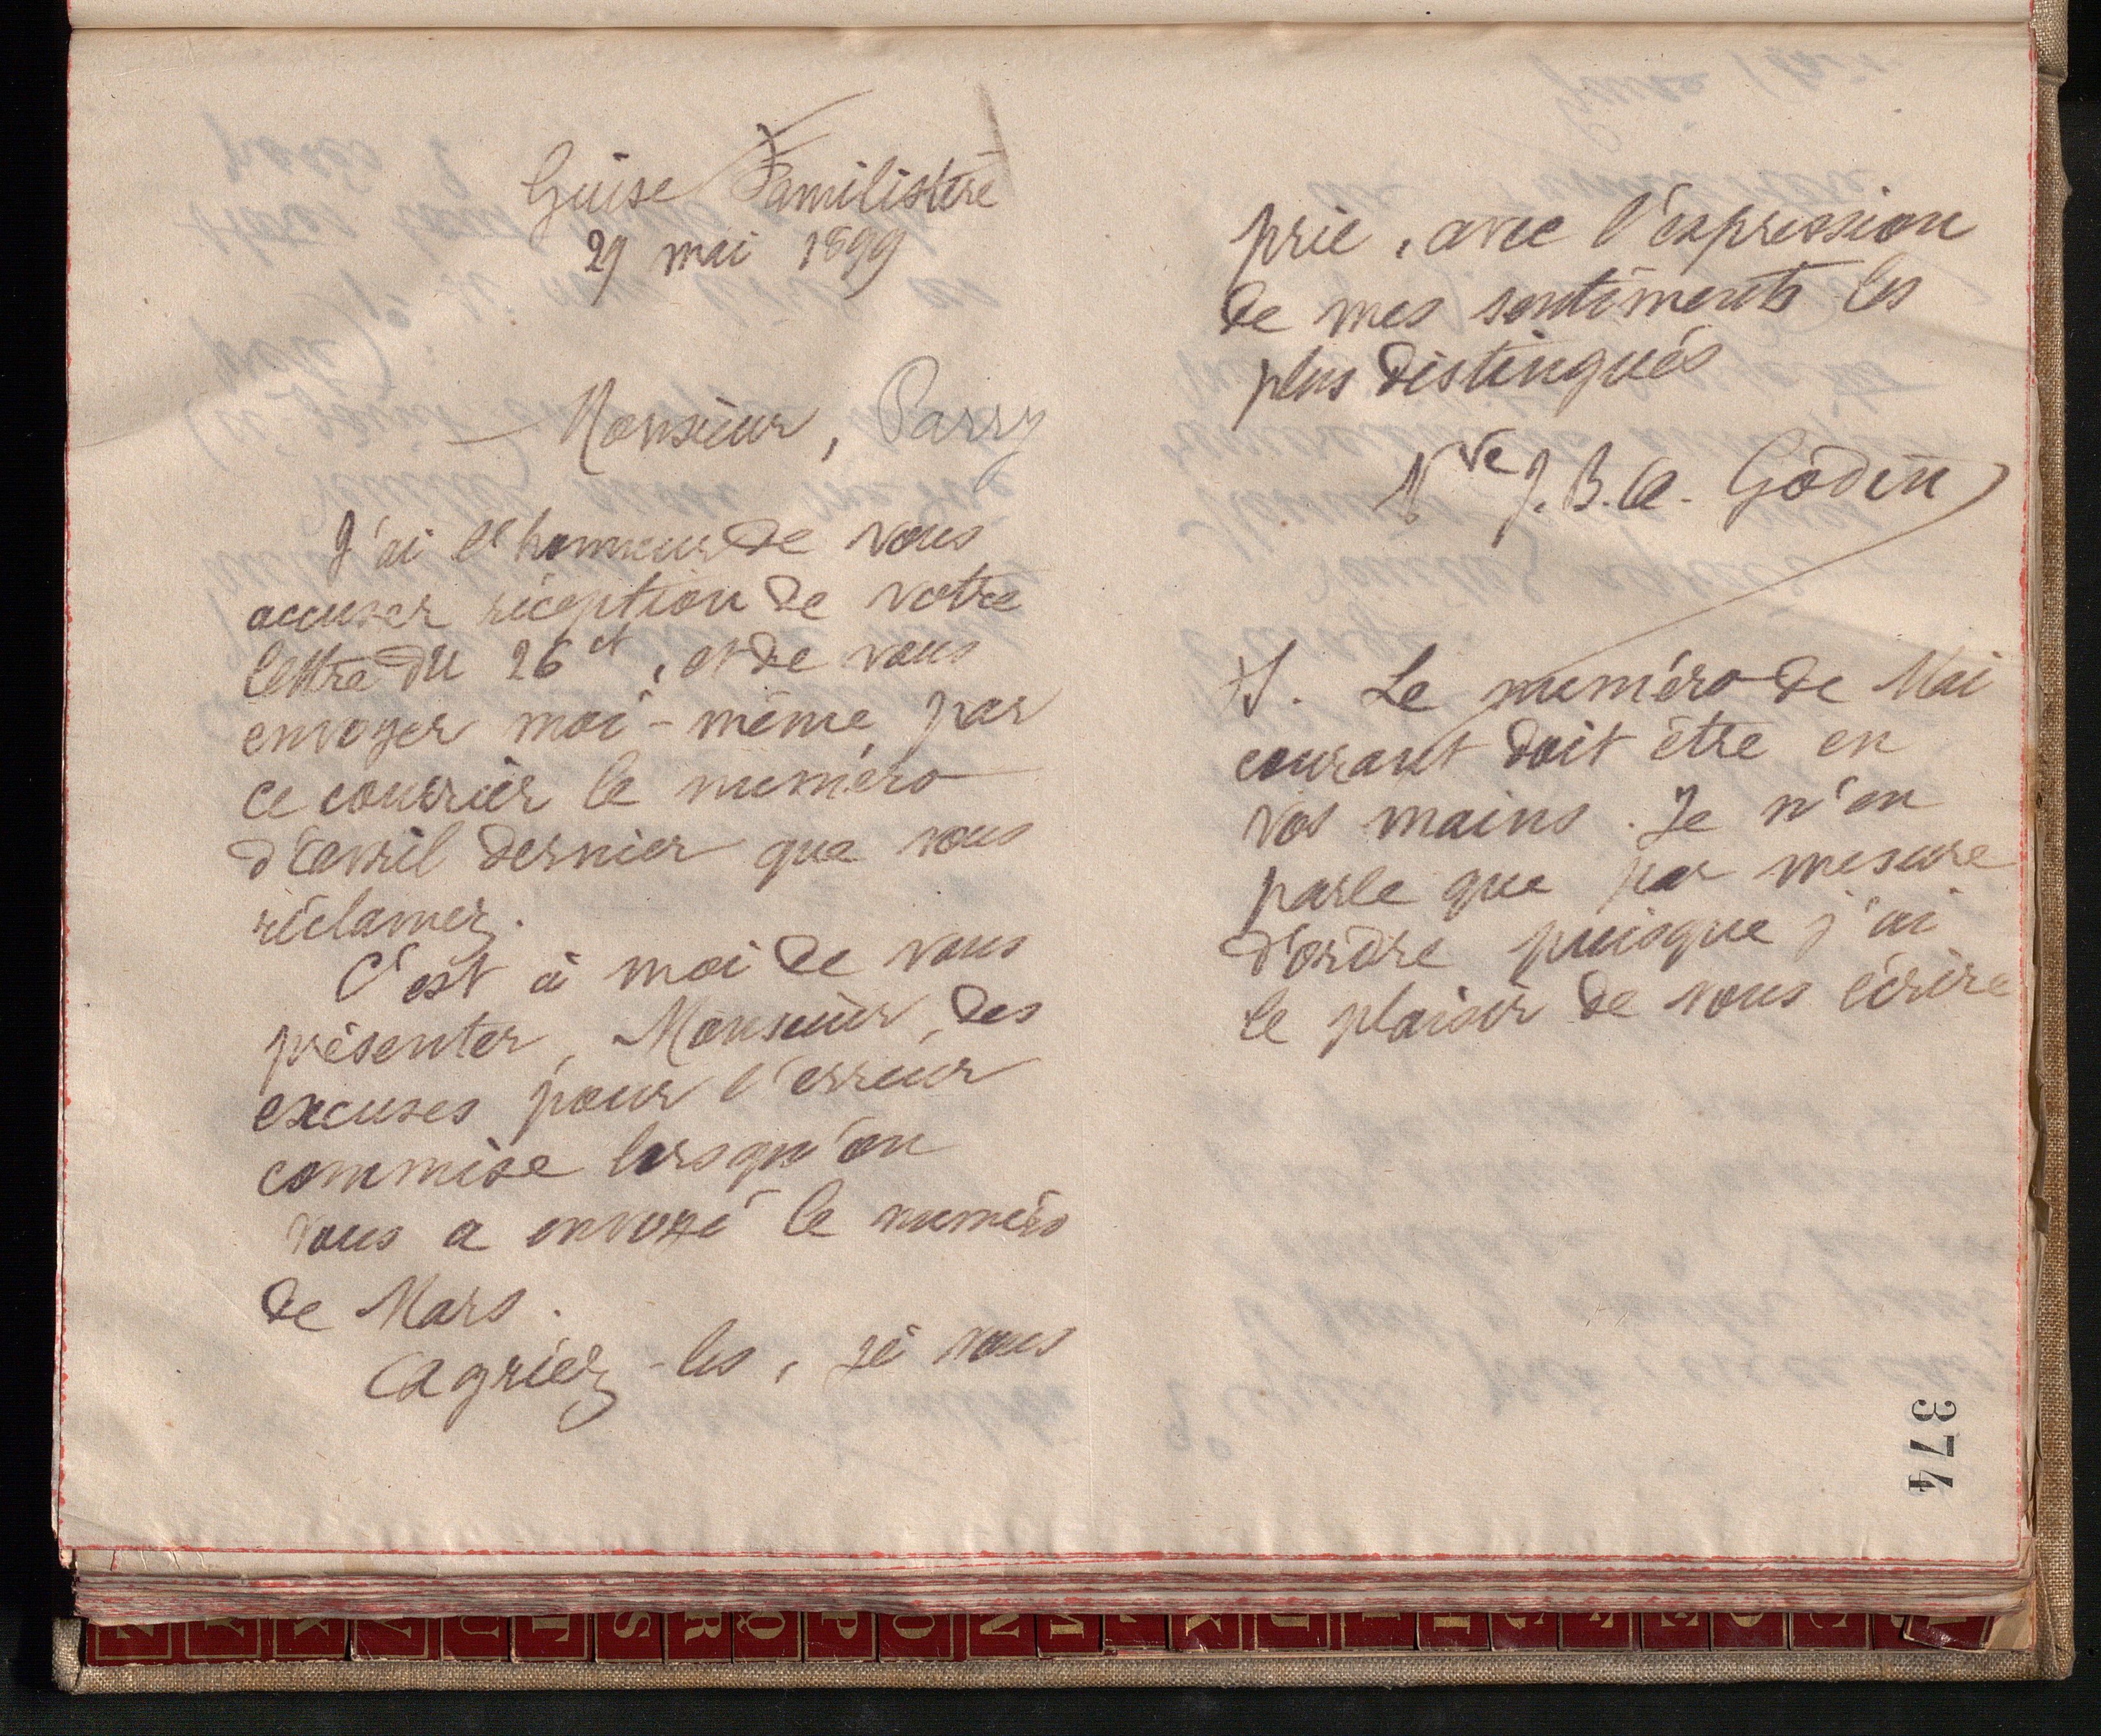 Guise Familistère
29 mai 1899
Monsieur, Parry
J'ai l'honneur de vous
accuser réception de votre
lettre du 26 ct, et de vous
envoyer moi-même par
ce courrier le numéro
d'avril dernier que vous
réclamez.
C'est à moi de vous
présenter, Monsieur, des
excuses pour l'erreur
commise lorsqu'on
vous a envoyé le numéro
de Mars.
Agréez-les, je vous
prie, avec l'expression
de mes sentiments les
plus distingués
Vve J. B. A. Godin
Le numéro de Mai
courant doit être en
vos mains. Je n'en
parle que par mesure
d'ordre puisque j'ai
le plaisir de vous écrire
374
Z Y X V U T S R Q P O N M L K J I H G F E D C